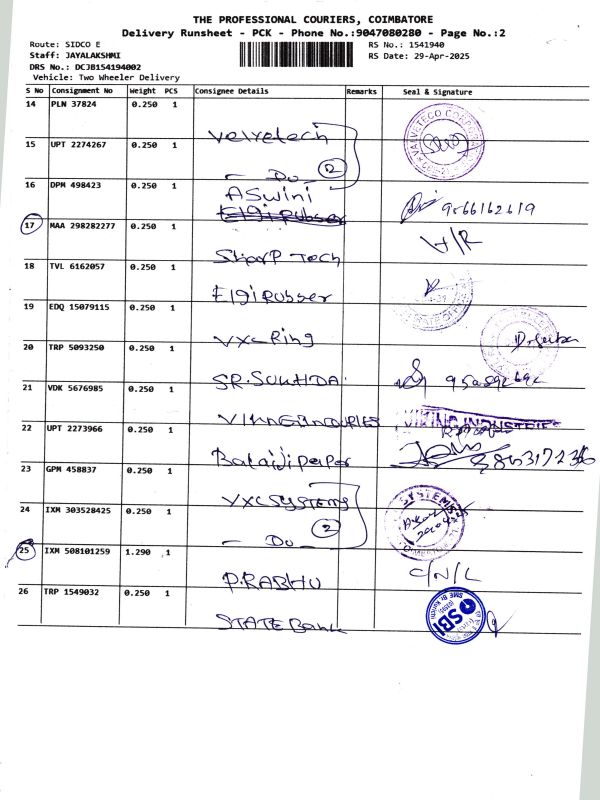 THE PROFESSIONAL COURIERS, COIMBATORE
Delivery Runsheet - PCK - Phone No.:9047080280 - Page No.:2
Route: SIDCO E
RS No.: 1541940
Staff: JAYALAKSHMI
RS Date: 29-Apr-2025
DRS No.: DCJB154194002
Vehicle: Two Wheeler Delivery
S No Consignment No Weight PCS Consignee Details Remarks Seal & Signature
14 PLN 37824 0.250 1
Velvetech
15 UPT 2274267 0.250 1
- Do - 2
16 DPM 498423 0.250 1
ASwini
Elgi Rubber 9566162619
17 MAA 298282277 0.250 1
Sharp Tech
18 TVL 6162057 0.250 1
Elgi Rubber
19 EDQ 15079115 0.250 1
VXC Ring
20 TRP 5093250 0.250 1
SR.SUKHDA
21 VDK 5676985 0.250 1
VIKING INDUSTRIES
22 UPT 2273966 0.250 1
Balaji paper
23 GPM 458837 0.250 1
VXC SYSTEMS SYSTEMS
24 IXM 303528425 0.250 1
- Do - 2
25 IXM 508101259 1.290 1
P.RABHU C/N/L
26 TRP 1549032 0.250 1
STATE Bank SBI